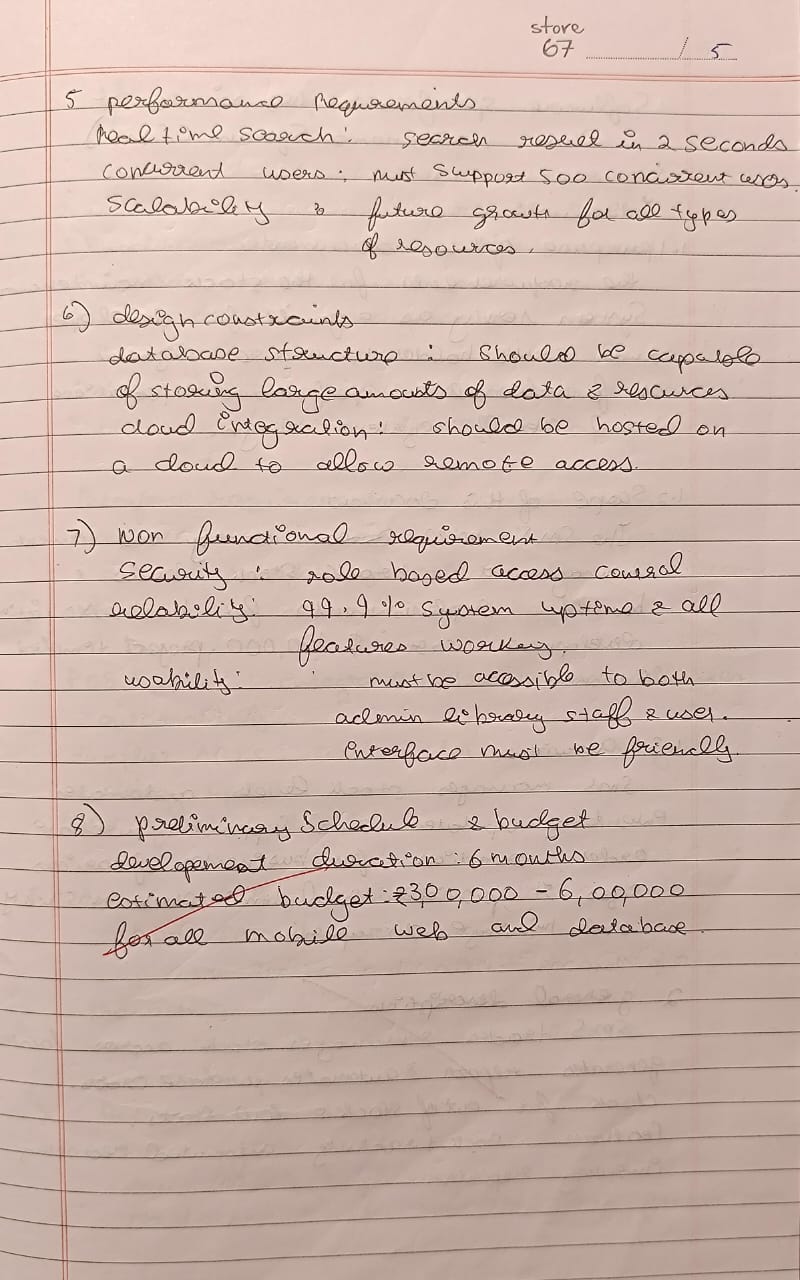 store
67 / 5
5 performance Requirements
Real time search: search resuel in 2 seconds
concurrent users: must support 500 concurrent users.
Scalability : future growth for all types
of resources.
6) design constraints
database structure : should be capable
of storing large amounts of data & resources
cloud integration: should be hosted on
a cloud to allow remote access.
7) Non functional requirement
Security : role based access control
relability: 99.9% system uptime & all
features working.
usability: must be accessible to both
admin library staff & user.
interface must be friendly.
8) preliminary Schedule & budget
developement duration : 6 months
estimated budget: ₹3,00,000 - 6,00,000
for all mobile web and database.